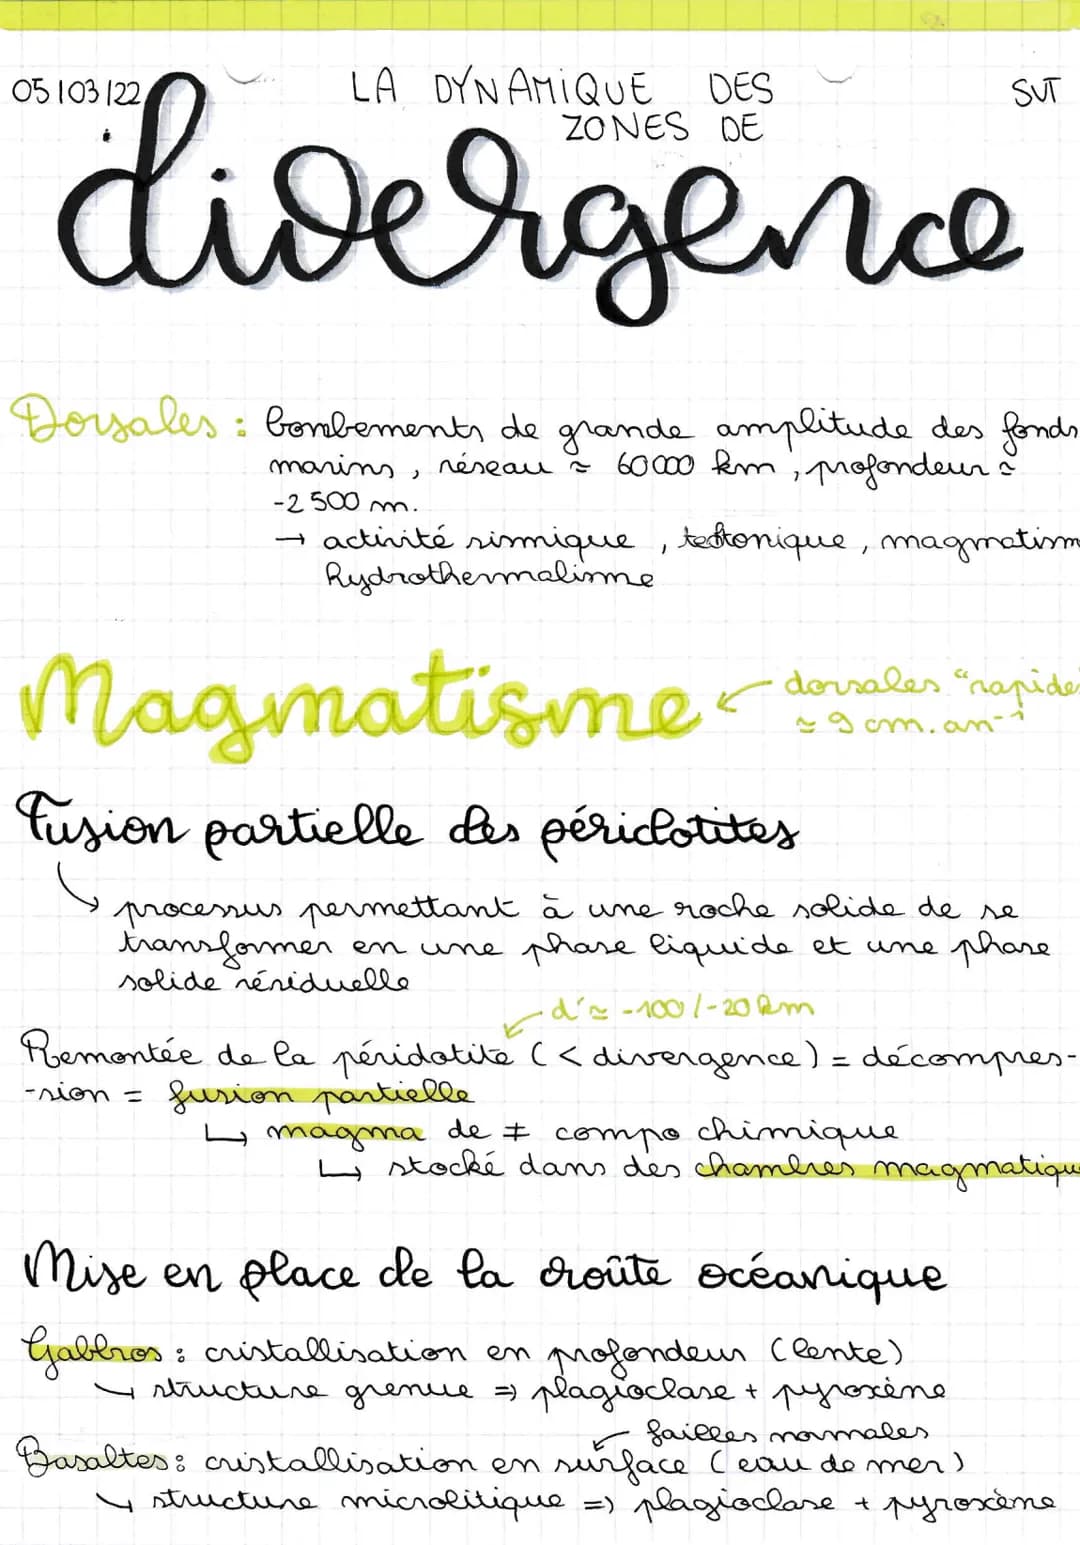 05/03/22
LA DYNAMIQUE DES
SVT
ZONES DE
divergence
Dorsales : bombements de grande amplitude des fonds
marins, réseau ≈ 60 000 km, profondeur ≈
-2 500 m.
→ activité sismique, tectonique, magmatism
hydrothermalisme
Magmatisme ← dorsales "rapide
≈ 9 cm.an⁻¹
Fusion partielle des péridotites
↳ processus permettant à une roche solide de se
transformer en une phase liquide et une phase
solide résiduelle
d'≈ -100/-20 km
Remontée de la péridotite (< divergence) = décompres-
-sion = fusion partielle
↳ magma de ≠ compo chimique
↳ stocké dans des chambres magmatique
Mise en place de la croûte océanique
Gabbros : cristallisation en profondeur (lente)
↳ structure grenue ⇒ plagioclase + pyroxène
← failles normales
Basaltes : cristallisation en surface (eau de mer)
↳ structure microlitique ⇒ plagioclase + pyroxème